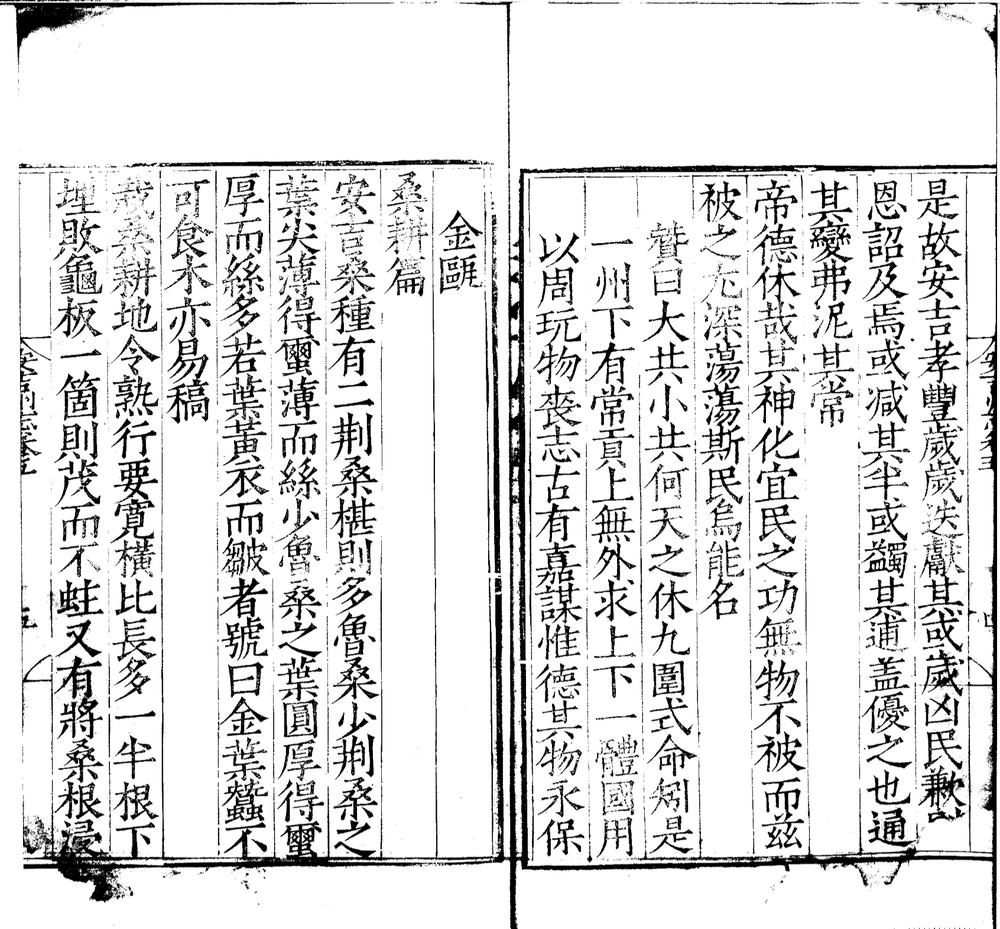 是故安吉孝豐歲歲迭獻其或歲凶民歉
恩詔及焉或减其半或蠲其逋盖優之也通
其變弗泥其常
帝德休哉其神化宜民之功無物不被而兹
被之尤深蕩蕩斯民烏能名
贊曰大共小共何天之休九圍式命矧是
一州下有常貢上無外求上下一體國用
以周玩物喪志古有嘉謀惟德其物永保
四
金甌
桑耕篇
安吉桑種有二荆桑椹則多魯桑少荆桑之
葉尖薄得薾薄而絲少魯桑之葉圓厚得薾
厚而絲多若葉黃衣而皺者號曰金葉蠶不
可食木亦易稿
栽桑耕地令熟行要寛橫比長多一半根下
埋敗龜板一箇則茂而不蛀又有將桑根浸
安吉州志卷五
五